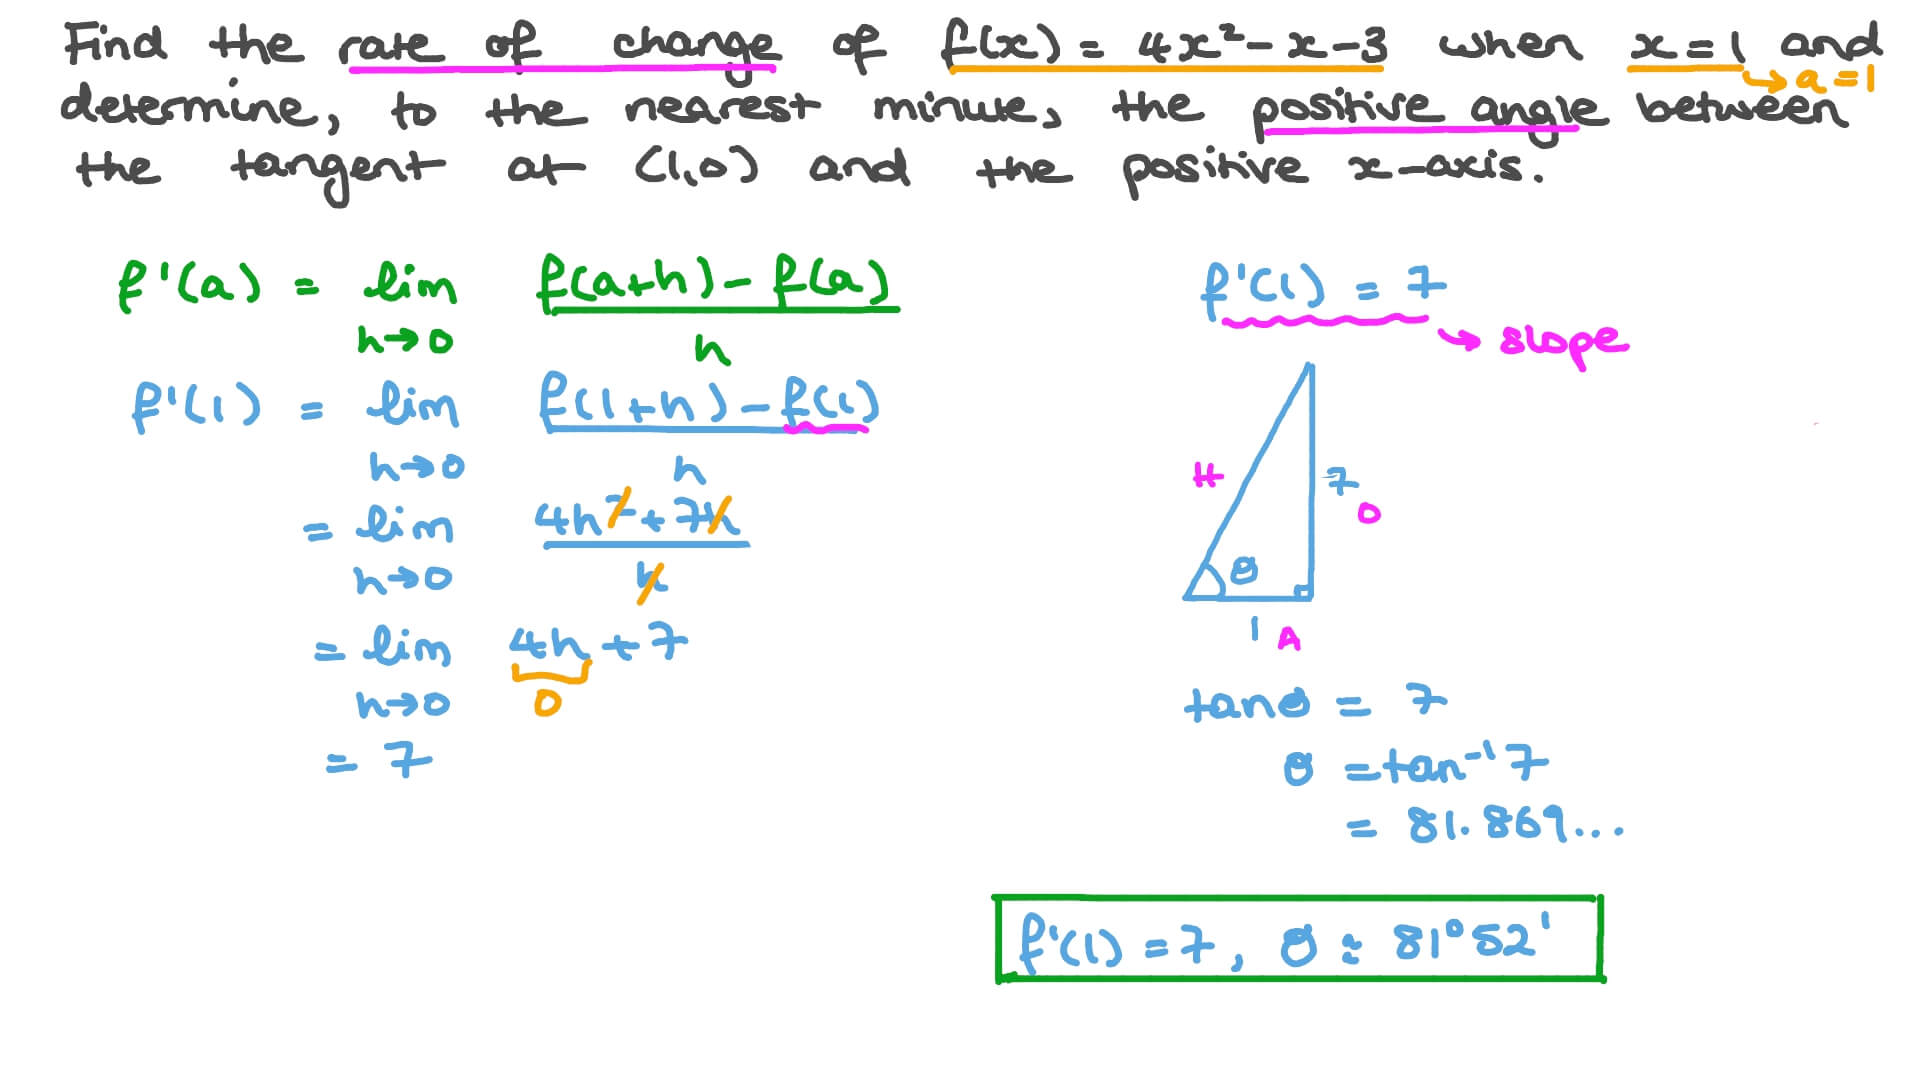 Find the rate of change of f(x) = 4x²-x-3 when x=1 and
→ a=1
determine, to the nearest minute, the positive angle between
the tangent at (1,0) and the positive x-axis.
f'(a) = lim h→0 f(a+h)-f(a) / h
f'(1) = lim h→0 f(1+h)-f(1) / h
= lim h→0 4h²+7h / h
= lim h→0 4h+7
0
= 7
f'(1) = 7
→ slope
H
7
O
θ
1 A
tanθ = 7
θ = tan⁻¹7
= 81.869...
f'(1) = 7, θ ≈ 81°52'